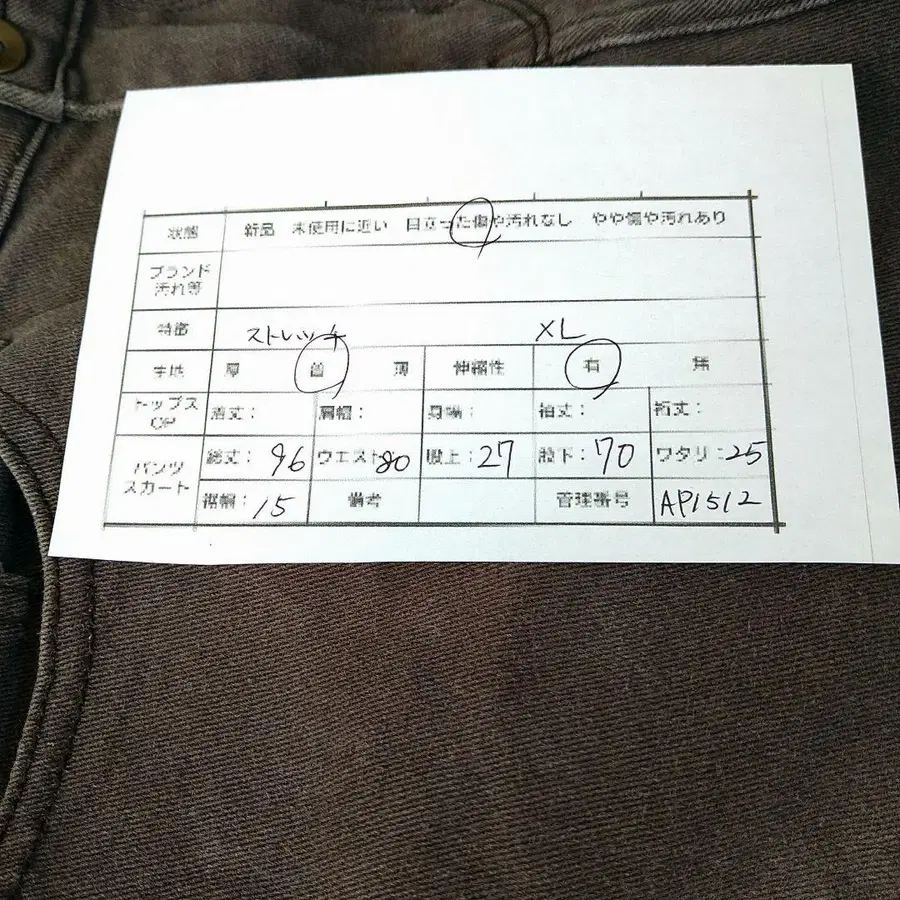 状態 新品 未使用に近い 目立った傷や汚れなし やや傷や汚れあり
ブランド
汚れ等
特徴 ストレッチ XL
生地 厚 普 薄 伸縮性 有 無
トップス
OP
着丈: 肩幅: 身幅: 袖丈: 裄丈:
パンツ
スカート
総丈: 96 ウエスト 80 股上: 27 股下: 70 ワタリ: 25
裾幅: 15 備考 管理番号 AP1512